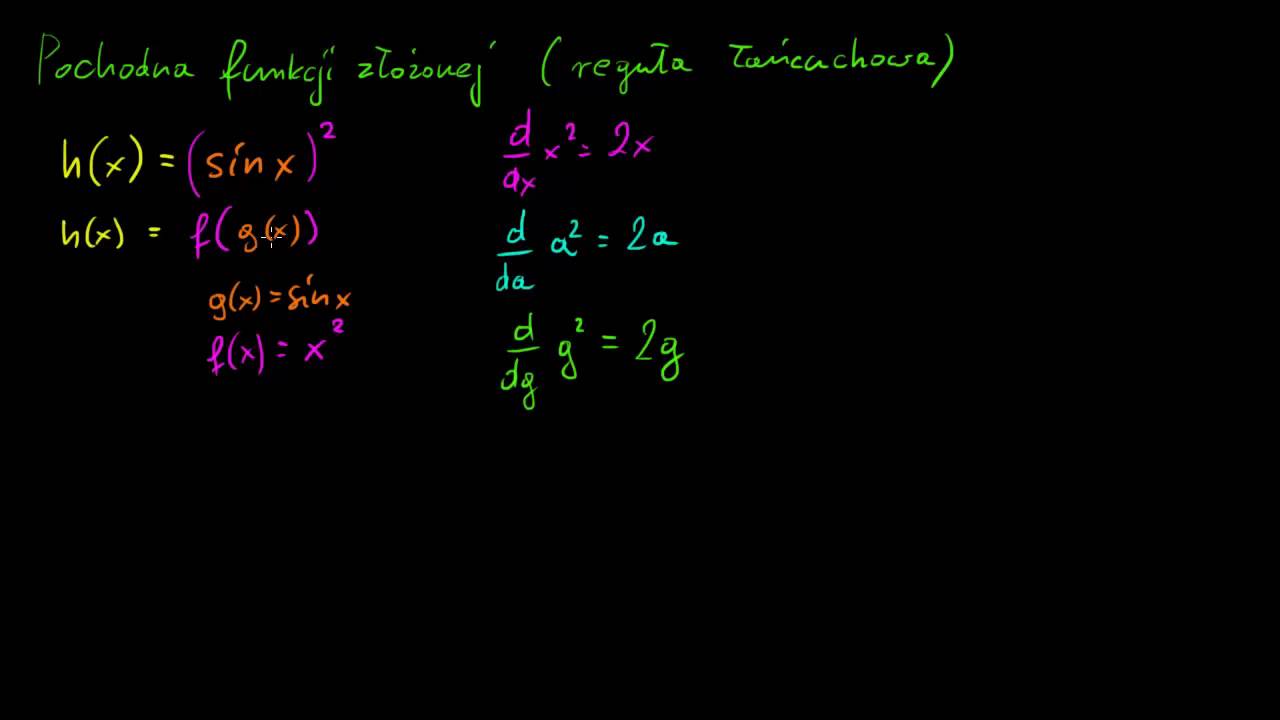 Pochodna funkcji złożonej (reguła łańcuchowa)
h(x) = (sin x)²
h(x) = f(g(x))
g(x) = sin x
f(x) = x²
d/dx x² = 2x
d/da a² = 2a
d/dg g² = 2g